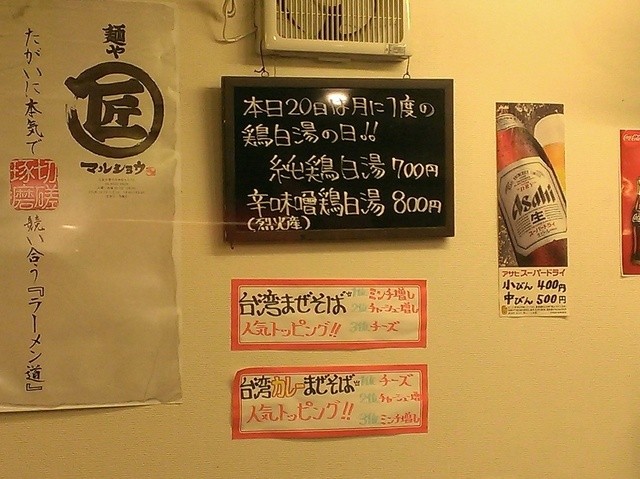 麺や
匠
マルショウ
たがいに本気で
切磋
琢磨
競い合う『ラーメン道』
本日20日は月に1度の
鶏白湯の日!!
純鶏白湯 700円
辛味噌鶏白湯 800円
台湾まぜそば
人気トッピング!!
1位 ミンチ増し
2位 チャーシュー増し
3位 チーズ
台湾カレーまぜそば
人気トッピング!!
1位 チーズ
2位 チャーシュー増し
3位 ミンチ増し
Asahi
生
アサヒスーパードライ
小びん 400円
中びん 500円